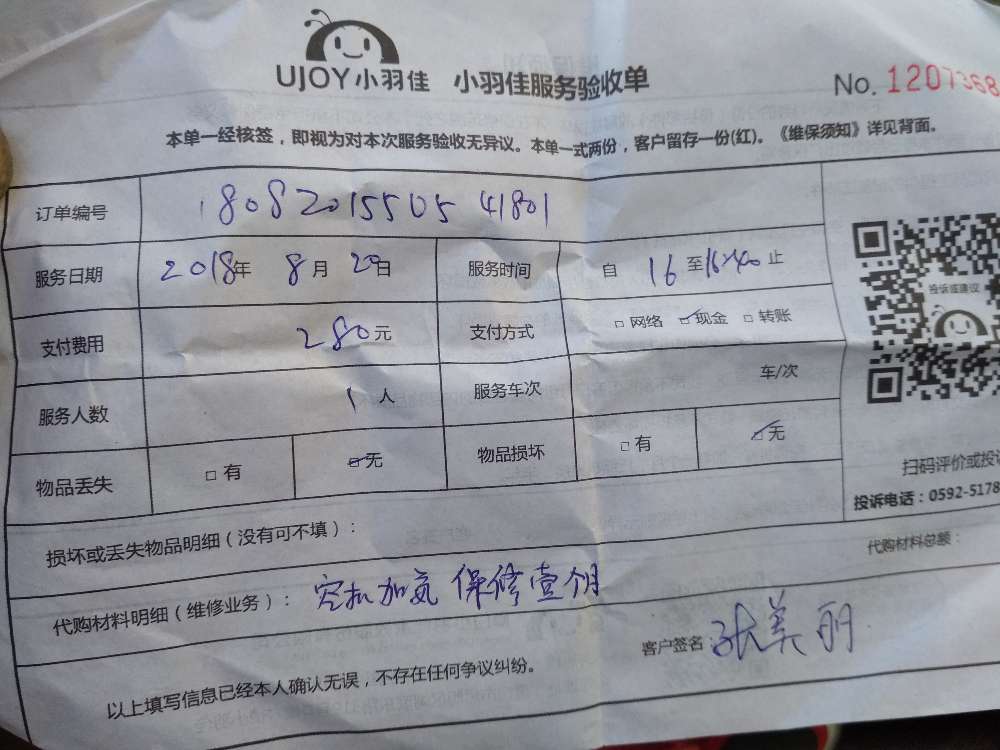 UJOY小羽佳 小羽佳服务验收单
No. 1207368
本单一经核签，即视为对本次服务验收无异议。本单一式两份，客户留存一份(红)。《维保须知》详见背面。
订单编号 18082015505 41801
服务日期 2018年 8月 20日 服务时间 自 16 至16:40止
支付费用 280元 支付方式 □ 网络 ☑ 现金 □ 转账
服务人数 1 人 服务车次 车/次
物品丢失 □ 有 ☑ 无 物品损坏 □ 有 ☑ 无
投诉或建议
扫码评价或投诉
投诉电话：0592-5178
损坏或丢失物品明细（没有可不填）：
代购材料总额：
代购材料明细（维修业务）： 空机加氟 保修壹个月
客户签名：张美丽
以上填写信息已经本人确认无误，不存在任何争议纠纷。